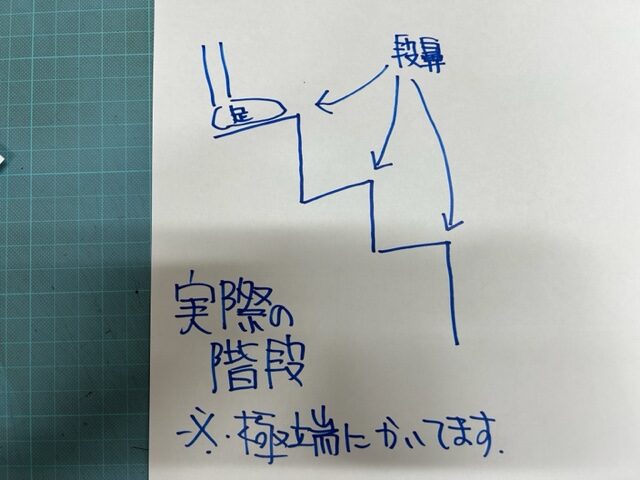 段鼻
足
実際の
階段
※・極端にかいてます.